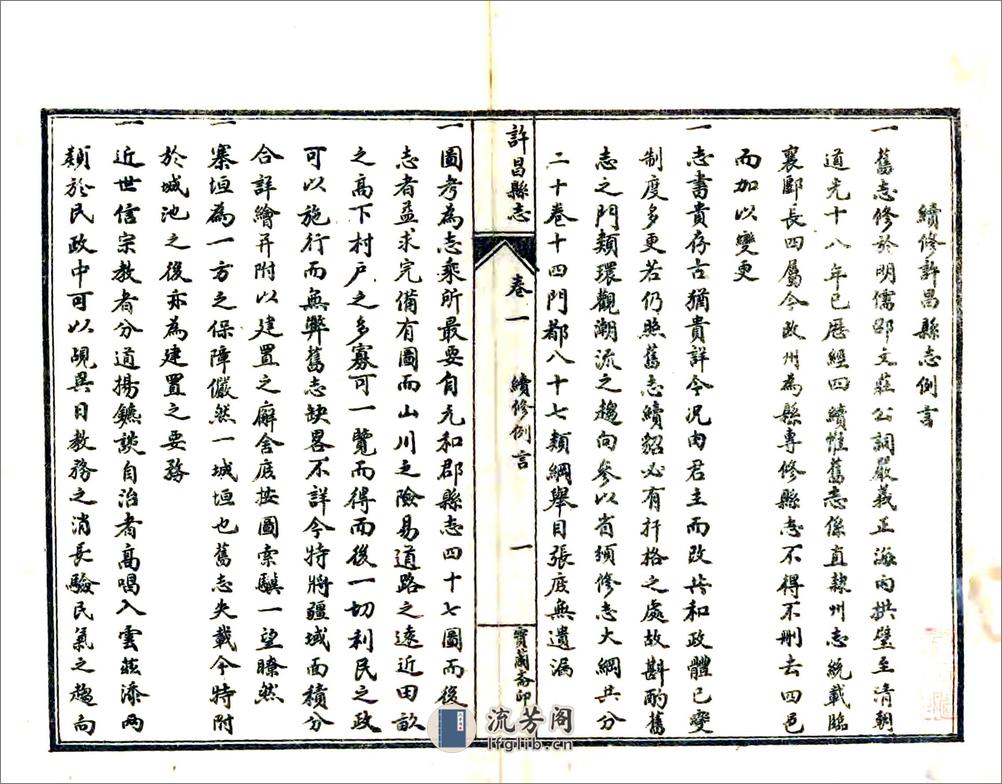 續修許昌縣志例言
一舊志修於明儒邵文莊公詞嚴義正海內拱璧至清朝
道光十八年已歷經四續惟舊志係直隸州志統載臨
襄郾長四屬今改州為縣專修縣志不得不刪去四邑
而加以變更
一志書貴存古猶貴詳今況由君主而改共和政體已變
制度多更若仍照舊志續貂必有扞格之處故斟酌舊
志之門類環觀潮流之趨向參以省頒修志大綱共分
二十卷十四門都八十七類綱舉目張庶無遺漏
許昌縣志
卷一
續修例言
一
寶蘭齋印
一圖考為志乘所最要自元和郡縣志四十七圖而後
志者益求完備有圖而山川之險易道路之遠近田畝
之高下村戶之多寡可一覽而得而後一切利民之政
可以施行而無弊舊志缺畧不詳今特將疆域面積分
合詳繪并附以建置之廨舍庶按圖索驥一望瞭然
一寨垣為一方之保障儼然一城垣也舊志失載今特附
於城池之後亦為建置之要務
一近世信宗教者分道揚鑣談自治者高唱入雲茲添兩
類於民政中可以覘異日教務之消長驗民氣之趨向
流芳阁
lfglib.cn